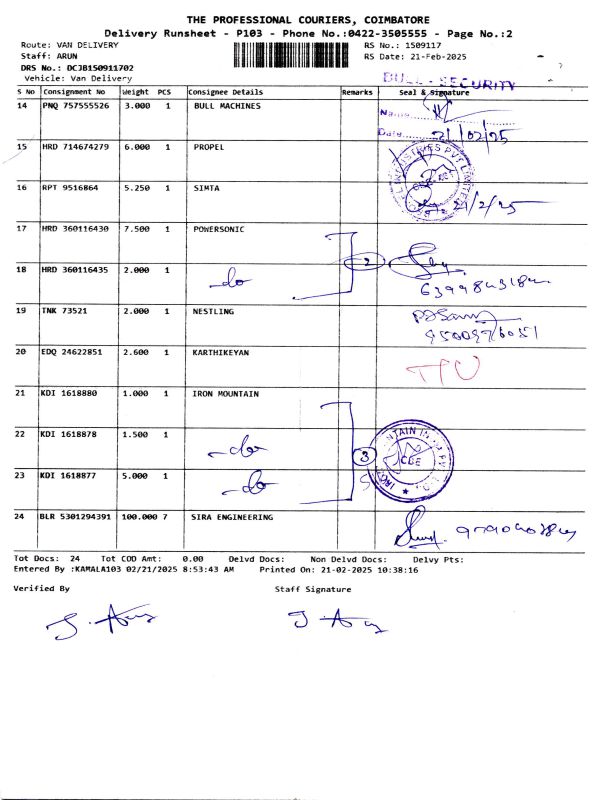 THE PROFESSIONAL COURIERS, COIMBATORE
Delivery Runsheet - P103 - Phone No.:0422-3505555 - Page No.:2
Route: VAN DELIVERY RS No.: 1509117
Staff: ARUN RS Date: 21-Feb-2025
DRS No.: DCJB150911702
Vehicle: Van Delivery BULL - SECURITY
S No Consignment No Weight PCS Consignee Details Remarks Seal & Signature
14 PNQ 757555526 3.000 1 BULL MACHINES
Name
Date 21/02/25
15 HRD 714674279 6.000 1 PROPEL
16 RPT 9516864 5.250 1 SIMTA
21/2/25
17 HRD 360116430 7.500 1 POWERSONIC
2
18 HRD 360116435 2.000 1 -do
19 TNK 73521 2.000 1 NESTLING
20 EDQ 24622851 2.600 1 KARTHIKEYAN
21 KDI 1618880 1.000 1 IRON MOUNTAIN
22 KDI 1618878 1.500 1 -do
3
CBE
23 KDI 1618877 5.000 1 -do
24 BLR 5301294391 100.000 7 SIRA ENGINEERING
Tot Docs: 24 Tot COD Amt: 0.00 Delvd Docs: Non Delvd Docs: Delvy Pts:
Entered By :KAMALA103 02/21/2025 8:53:43 AM Printed On: 21-02-2025 10:38:16
Verified By Staff Signature